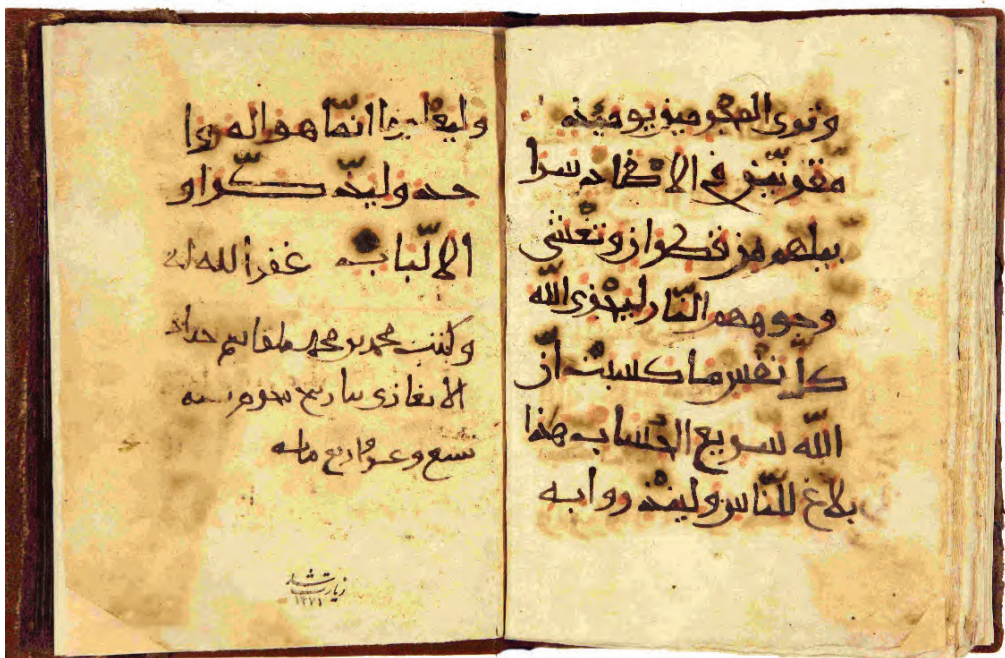 وترى المجرمين يومئذ
مقرنين في الاصفاد سرا
بيلهم من قطران وتغشى
وجوههم النار ليجزى الله
كل نفس ما كسبت ان
الله سريع الحساب هذا
بلاغ للناس ولينذروا به
وليعلموا انما هو اله وا
حد وليذكر اولوا
الالباب غفر الله له
وكتب محمد بن محمد
بتاريخ محرم سنة
سبع و
زيارت شد
١٢٧١